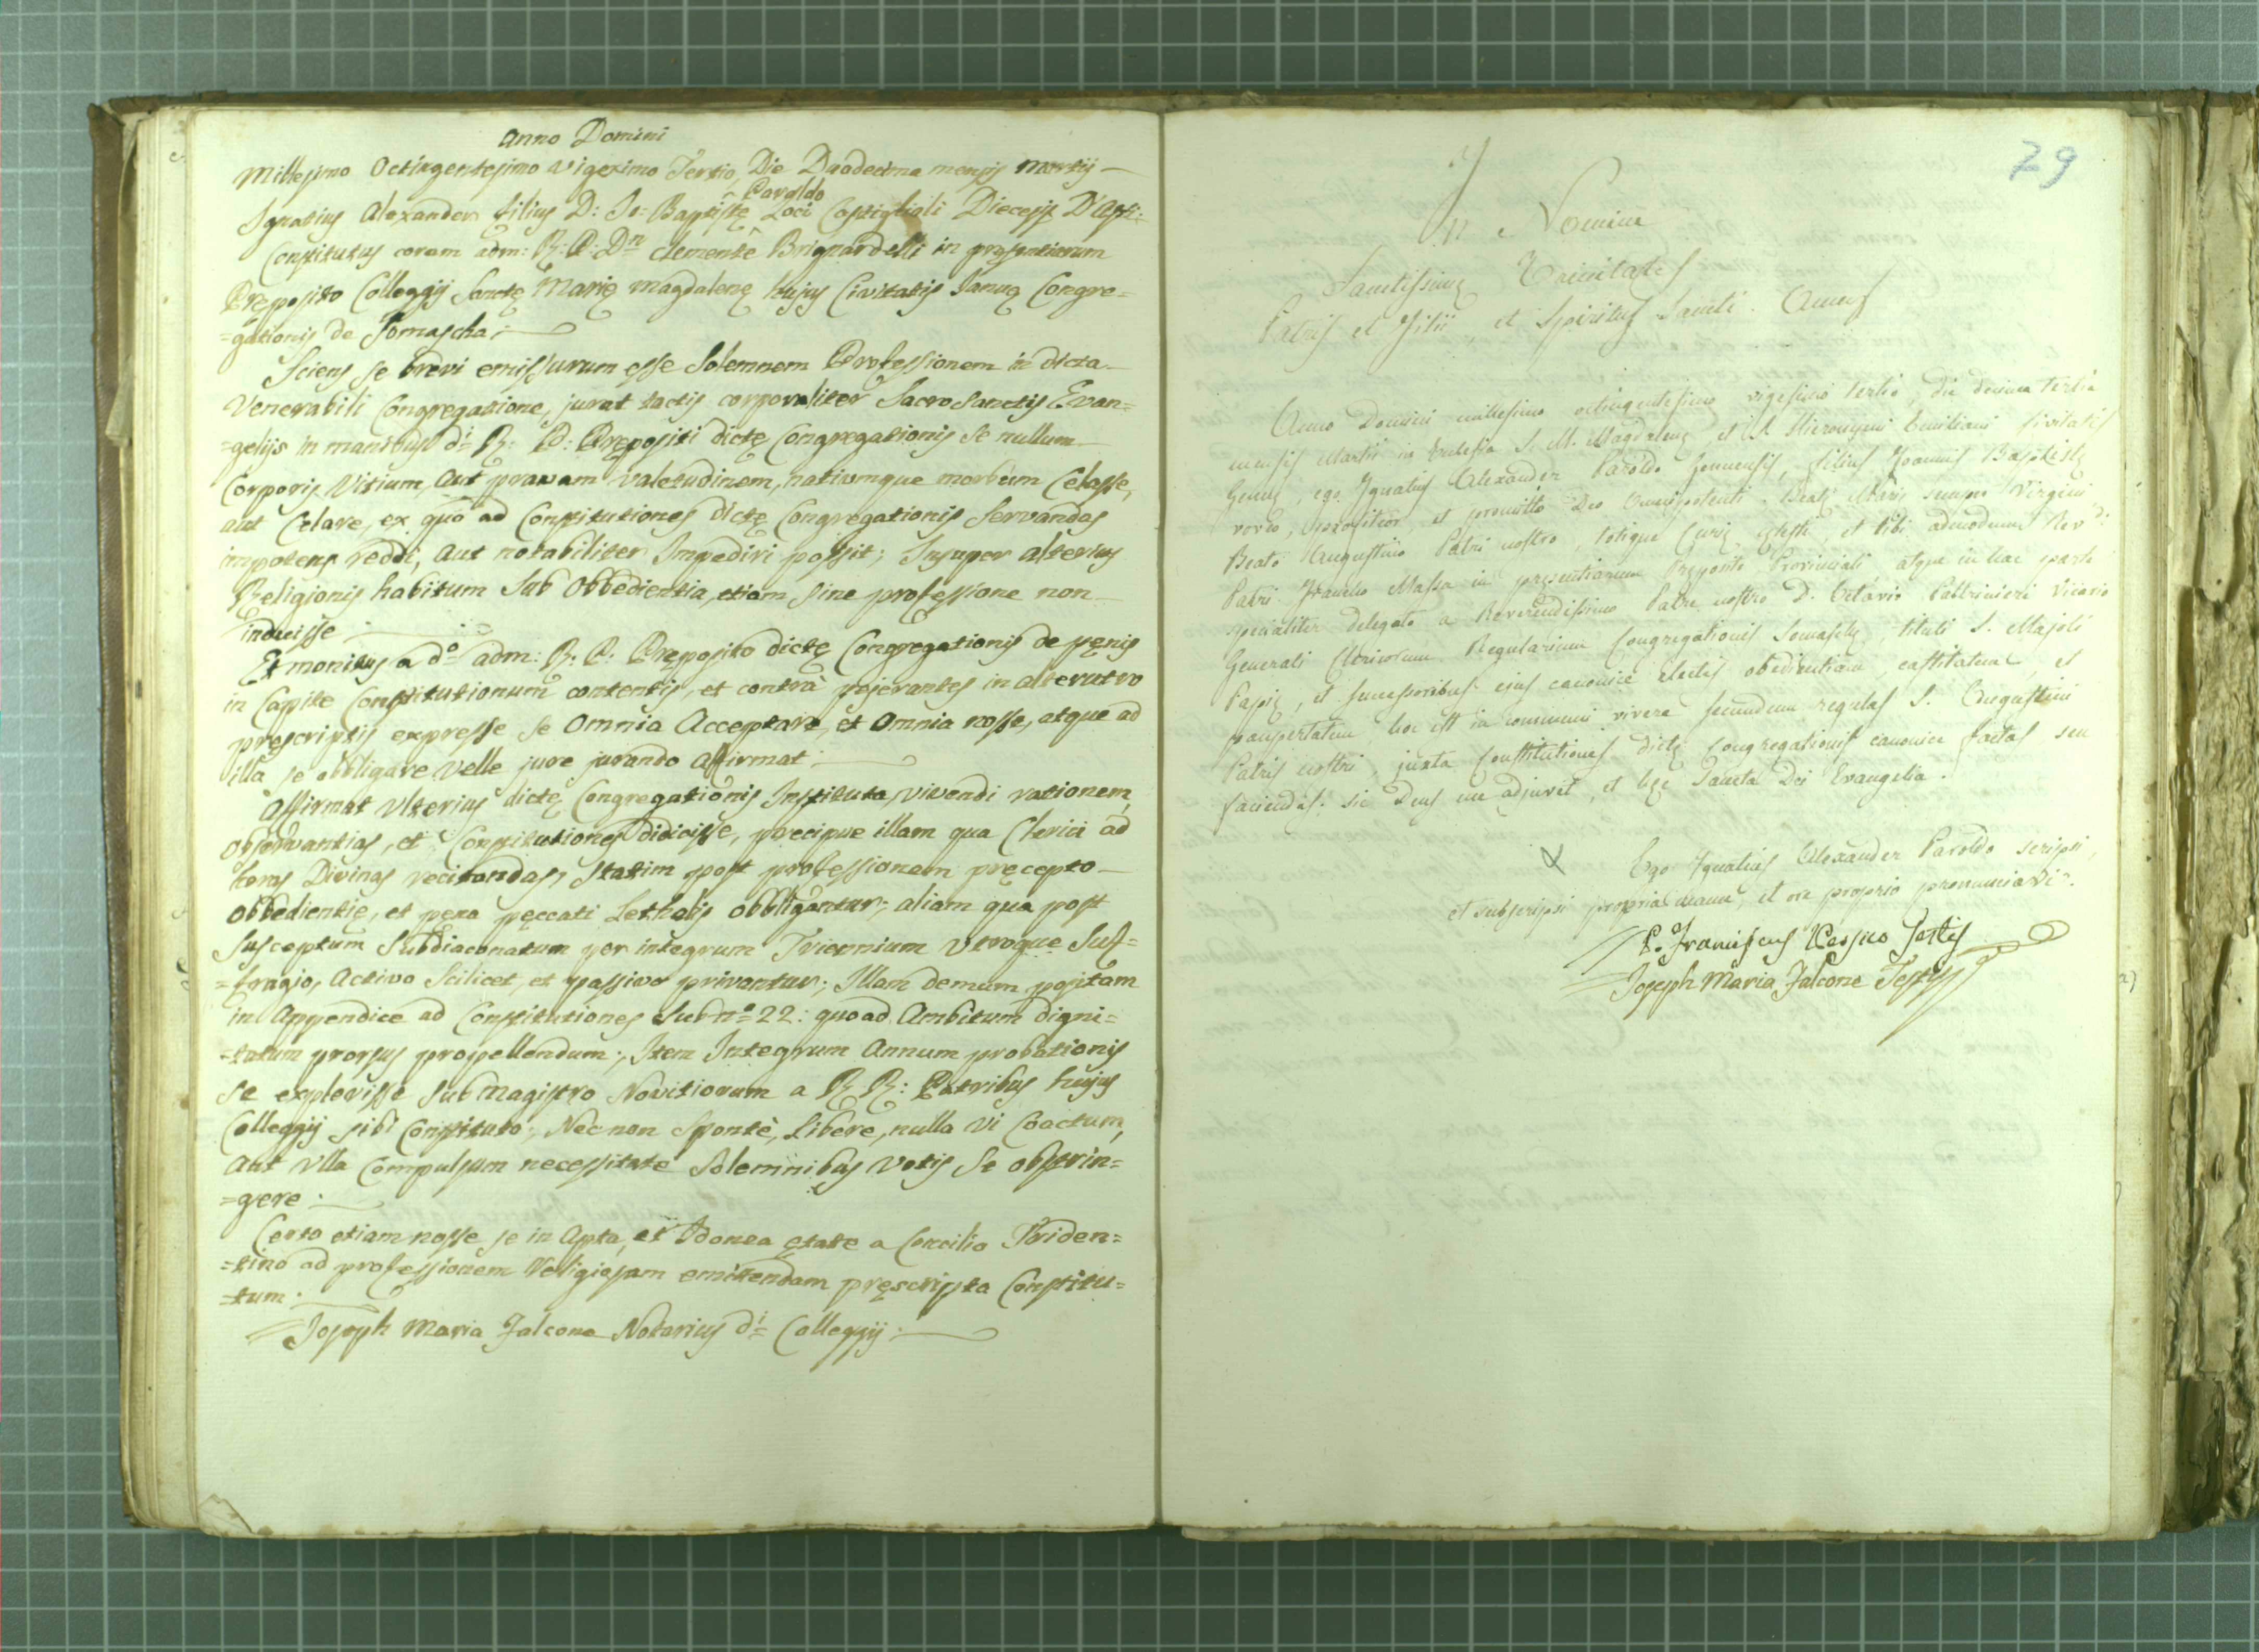 Anno Domini
Millesimo Octingentesimo Vigesimo Tertio, Die Duodecima mensis Martij
Paroldo
Ignatius Alexander filius D: Jo: Baptistę Loci Costiglioli Diecesis D'Asti:
Constitutus coram adm: R: P: Dn Clemente Brignardelli in presentiarum
Pręposito Collegij Sanctę Marię Magdalenę hujus Civitatis Januę Congre=
=gationis de Somascha:
Sciens se brevi emissurum esse Solemnem Professionem in dicta
Venerabili Congregatione, jurat tactis corporaliter Sacro Sanctis Evan=
=gelijs in manibus di R: P: Prępositi dictę Congregationis se nullum
Corporis Vitium, aut pravam valetudinem, nativumque morbum Celasse,
aut Celare, ex quo ad Constitutiones dictę Congregationis Servandas
impotens reddi, aut notabiliter Impediri possit; Insuper alterius
Religionis habitum Sub Obbedientia, etiam sine professione non
induisse
Et monitus a do adm: R: P: Pręposito dictę Congregationis de pęnis
in Capite Constitutionum contentis, et contrà pejerantes in alterutro
pręscriptis expresse se Omnia Acceptare, et Omnia nosse, atque ad
illa se obbligare Velle jure jurando affirmat:
Affirmat Ulterius dictę Congregationis Instituta, vivendi rationem,
observantias, et Constitutiones didicisse, precipue illam qua Clerici ad
horas Divinas recitandas, Statim post professionem pręcepto
Obbedientię, et pęna pęccati Lethalis obbligantur; aliam qua post
Susceptum Subdiaconatum per integrum Triennium Utroque Suf=
=fragio, Activo Scilicet, et passivo privantur; Illam demum positam
in Appendice ad Constitutiones Sub no 22: quoad Ambitum digni=
=tatum prorsus propellendum; Item Integrum Annum probationis
se explevisse Sub Magistro Novitiorum a R R: Patribus hujus
Collegij sibi Constituto; Nec non Spontè, Libere, nulla Vi Coactum,
aut Ulla Compulsum necessitate Solemnibus Votis Se obstrin=
=gere:
Certo etiam nosse se in Apta, et Idonea ętate a Concilio Triden=
=tino ad professionem Religiosam emittendam pręscripta Constitu=
=tum:
Joseph Maria Falcone Notarius di Collegij:
29
In Nomine
Sanctissimę Trinitatis
Patris et Filii, et Spiritus Sancti. Amen
Anno Domini millesimo octingentesimo vigesimo tertio, die decima tertia
mensis Martii in Ecclesia S. M. Magdalenę et S. Hieronymi Emiliani Civitatis
Genuę, ego Ignatius Alexander Paroldo Genuensis, filius Joannis Baptistę
voveo, profiteor, et promitto Deo Omnipotenti, Beatę Marię semper Virgini
Beato Augustino Patri nostro, totique Curię cęlesti et tibi admodum Revdi
Patri Massa in pręsentiarum Pręposito Provinciali atque in hac parte
specialiter delegato a Reverendissimo Patre nostro D. Octavio Paltrinieri Vicario
Generali Clericorum Regularium Congregationis Somaschę, tituli S. Majoli
Papię, et successoribus ejus canonice electis obedientiam, castitatem, et
paupertatem hoc est in communi vivere secundum regulas S. Augustini
Patris nostri, juxta Constitutiones dictę Congregationis canonice factas seu
faciendas: sic Deus me adjuvet, et hęc Sancta Dei Evangelia.
Ego Ignatius Alexander Paroldo scripsi,
et subscripsi propria manu, et ore proprio pronunciavi.
P. Franciscus Testis
Joseph Maria Falcone Testis